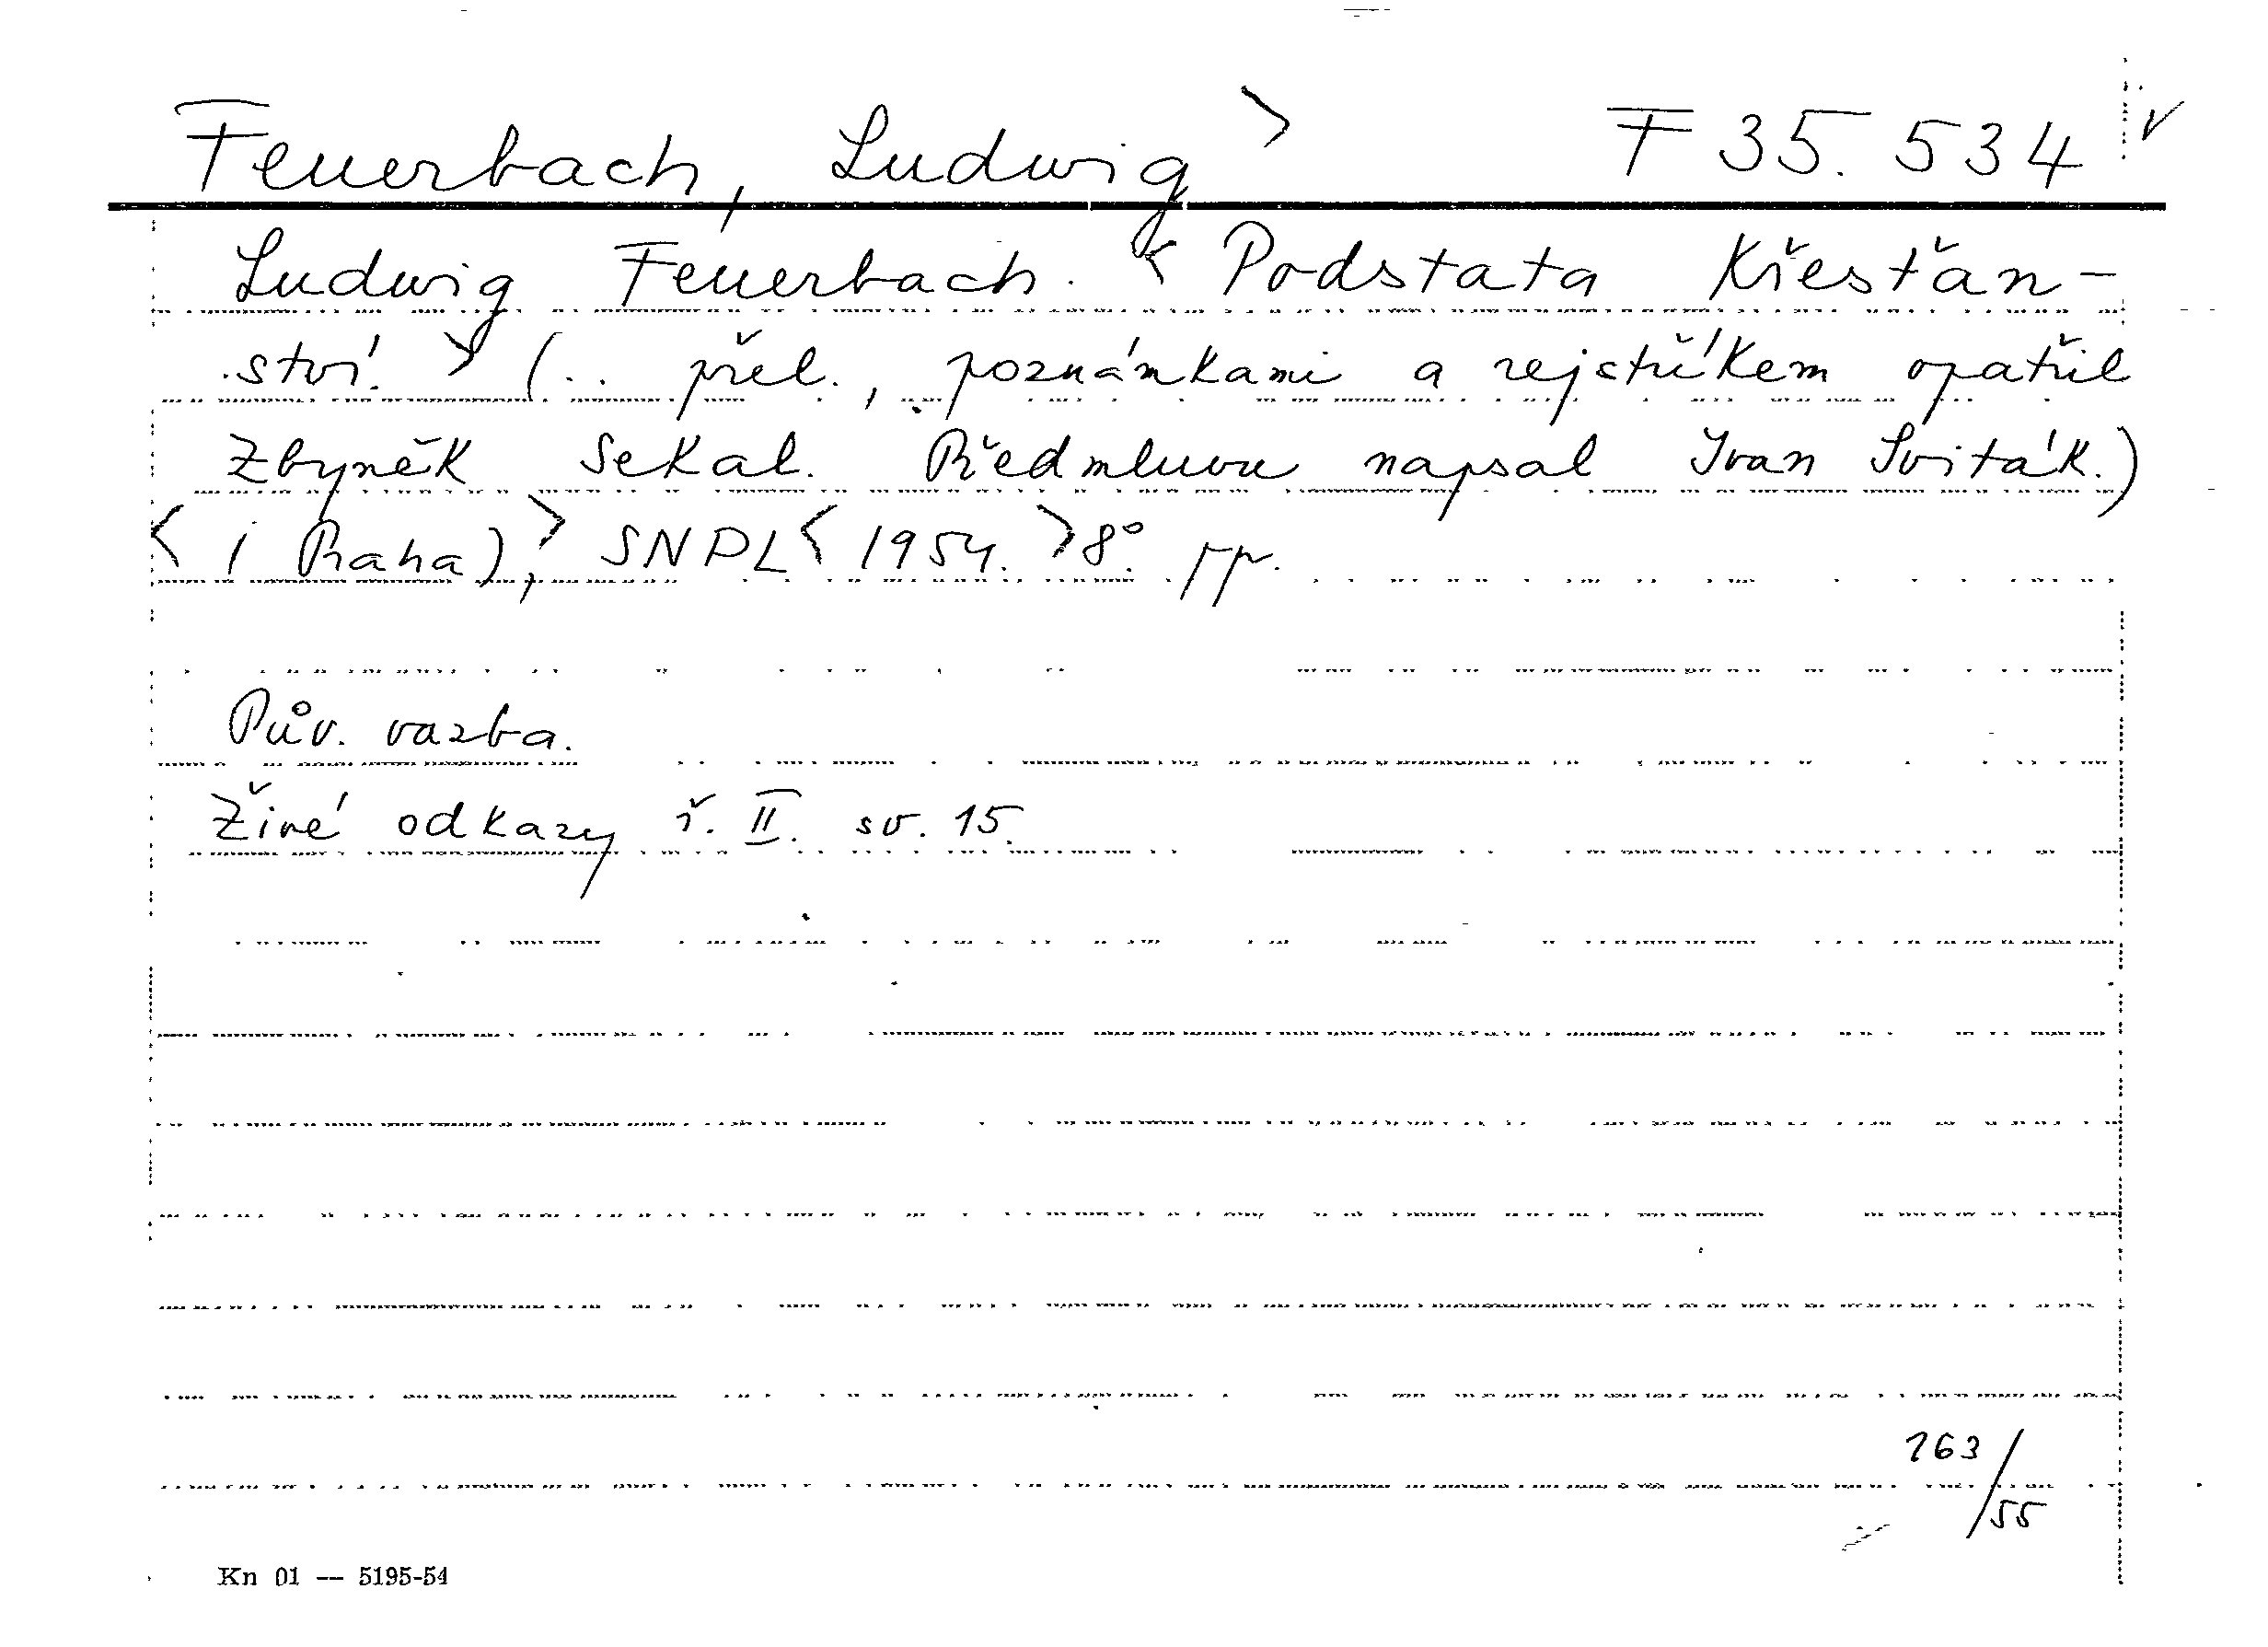 Feuerbach, Ludwig > F 35.534 v
Ludwig Feuerbach. < Podstata Křesťan-
ství. > (.. přel., poznámkami a rejstříkem opatřil
Zbyněk Sekal. Předmluvu napsal Ivan Sviták.)
< ( Praha), > SNPL < 1954. > 8°.
Pův. vazba.
Živé odkazy ř. II. sv. 15.
163/55
Kn 01 — 5195-54